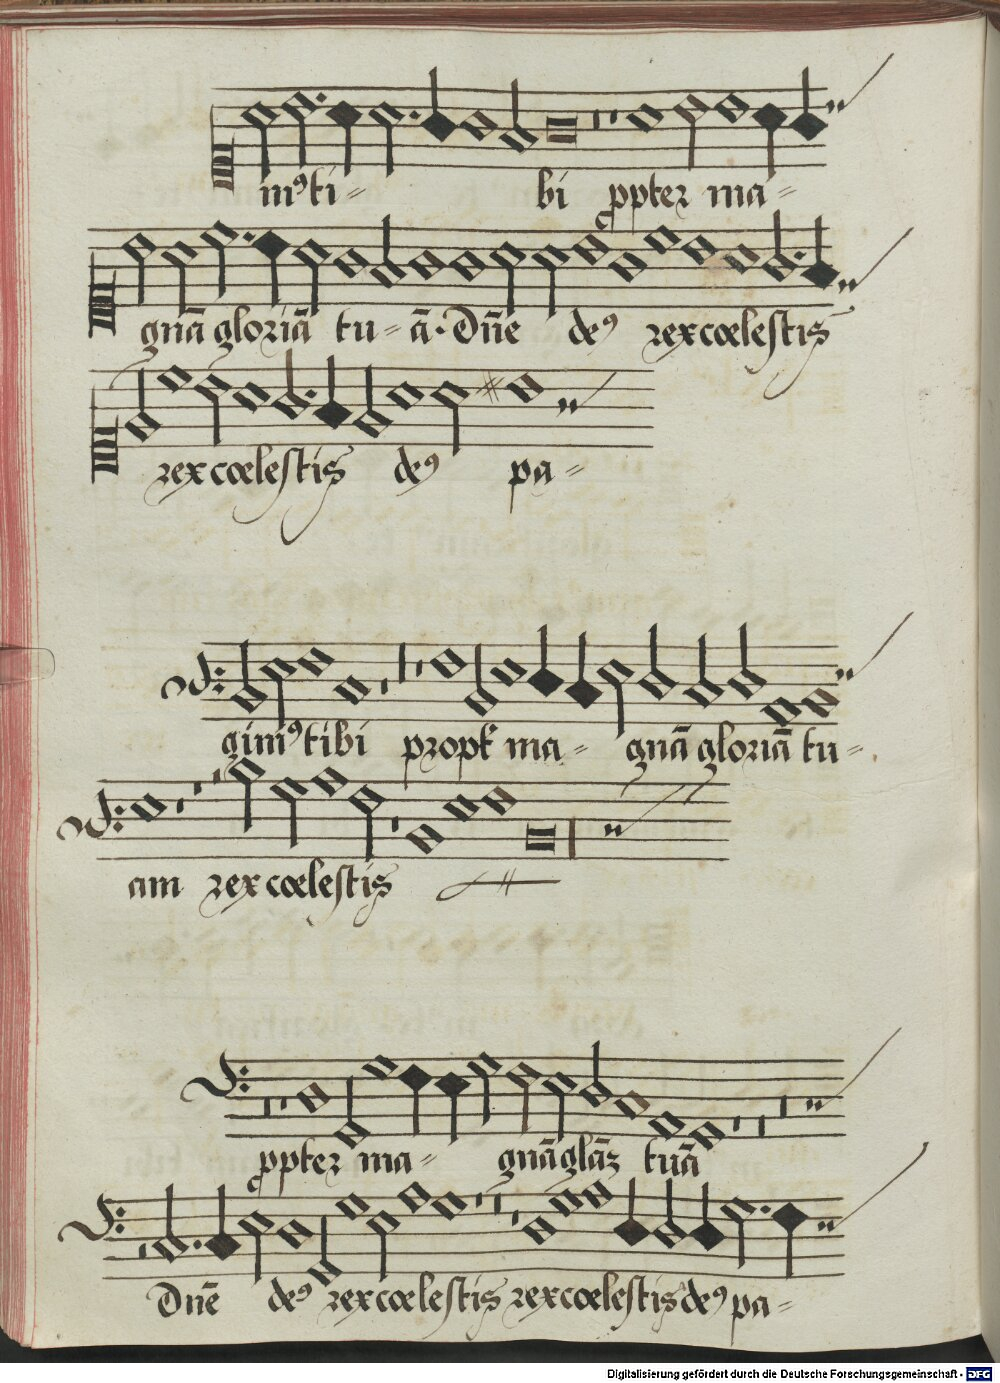 mꝰ ti= bi ꝓpter ma=
gnā gloriā tu= ā. Dn̄e deꝰ rex cœlestis
rex cœlestis deꝰ pa=
gimꝰ tibi propt ma= gnā gloriā tu=
am rex cœlestis
ꝓpter ma= gnā glāz tuā
Dn̄e deꝰ rex cœlestis rex cœlestis deꝰ pa=
Digitalisierung gefördert durch die Deutsche Forschungsgemeinschaft - DFG